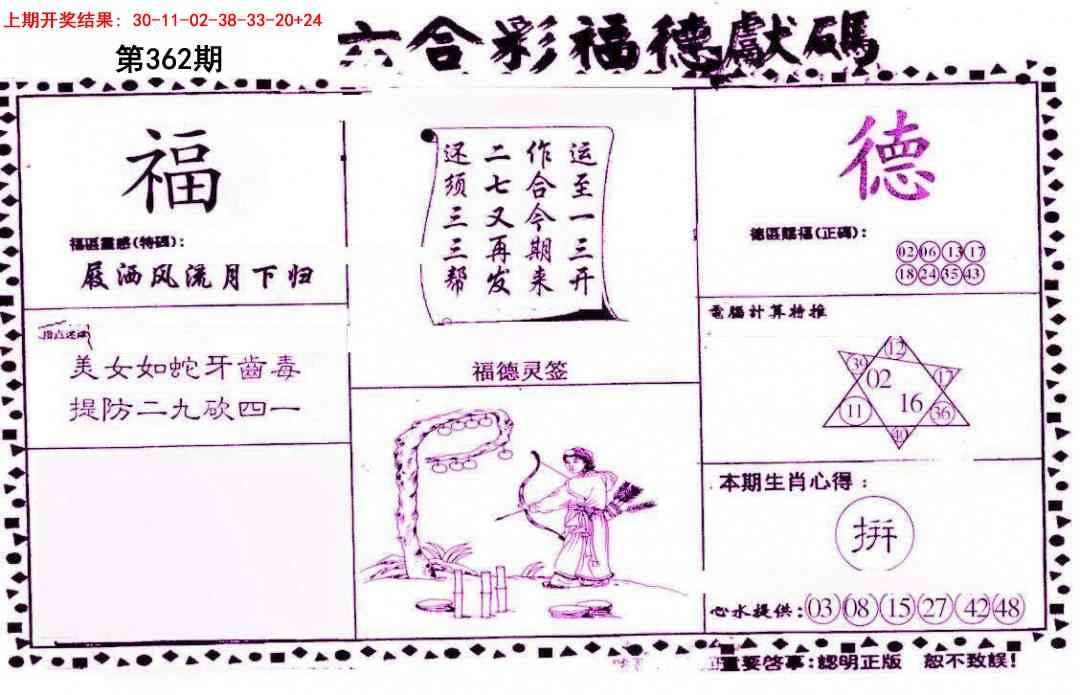 上期开奖结果：30-11-02-38-33-20+24
第362期
六合彩福德獻碼
福
福區靈感(特碼)：
屐洒风流月下归
美女如蛇牙齒毒
提防二九砍四一
运至一三开
作合今期来
二七又再发
还须三三帮
福德灵签
德
德區賜福(正碼)：
02 06 13 17
18 24 35 43
電腦計算特推
12
39 02 17
11 16 36
40
本期生肖心得：
拼
心水提供：03 08 15 27 42 48
重要啓事：認明正版 恕不致誤！